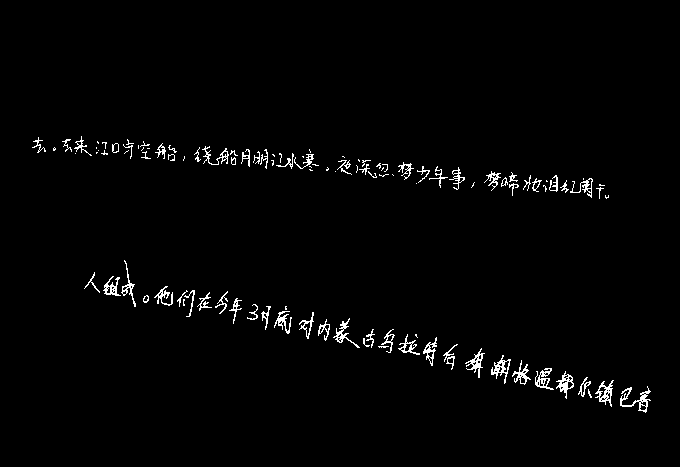 去。去来江口守空船，绕船月明江水寒。夜深忽梦少年事，梦啼妆泪红阑干。
人组成。他们在今年3月底对内蒙古乌拉特后旗潮格温都尔镇巴音